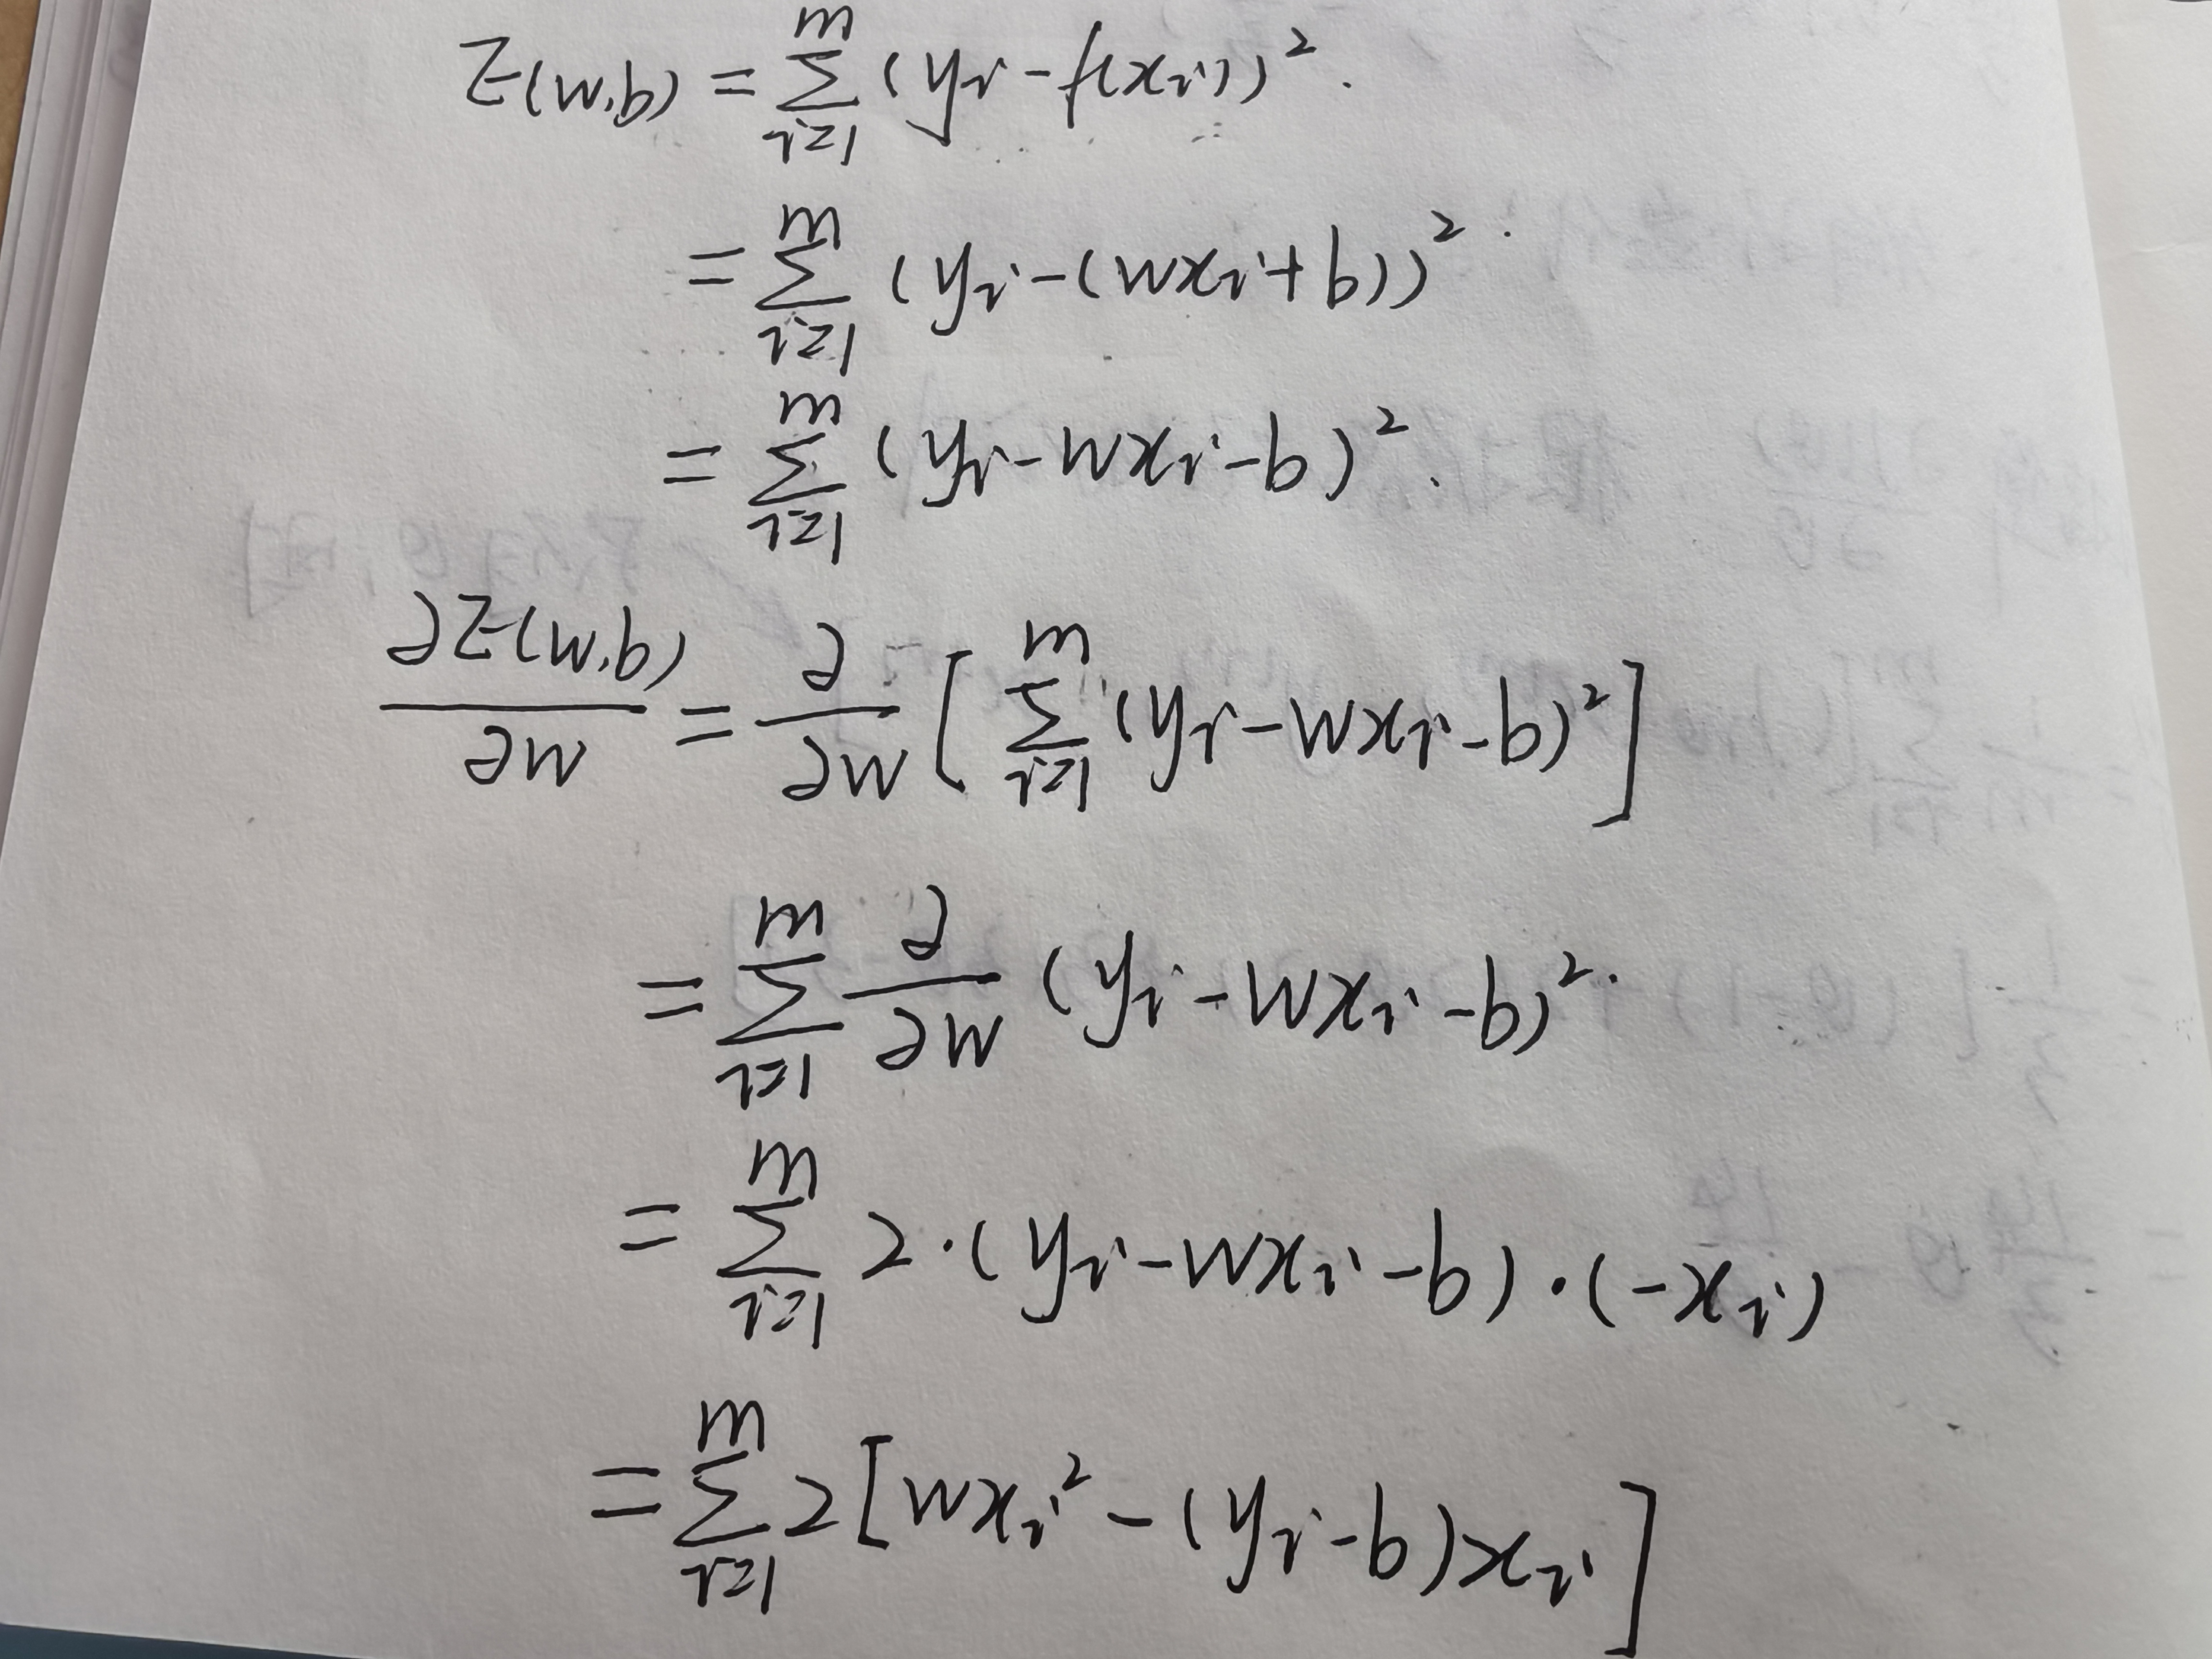 E(w,b) = \sum_{i=1}^{m} (y_i - f(x_i))^2.
= \sum_{i=1}^{m} (y_i - (wx_i + b))^2.
= \sum_{i=1}^{m} (y_i - wx_i - b)^2.
\frac{∂E(w,b)}{∂w} = \frac{∂}{∂w} [ \sum_{i=1}^{m} (y_i - wx_i - b)^2 ]
= \sum_{i=1}^{m} \frac{∂}{∂w} (y_i - wx_i - b)^2.
= \sum_{i=1}^{m} 2·(y_i - wx_i - b)·(-x_i)
= \sum_{i=1}^{m} 2[wx_i^2 - (y_i - b)x_i]